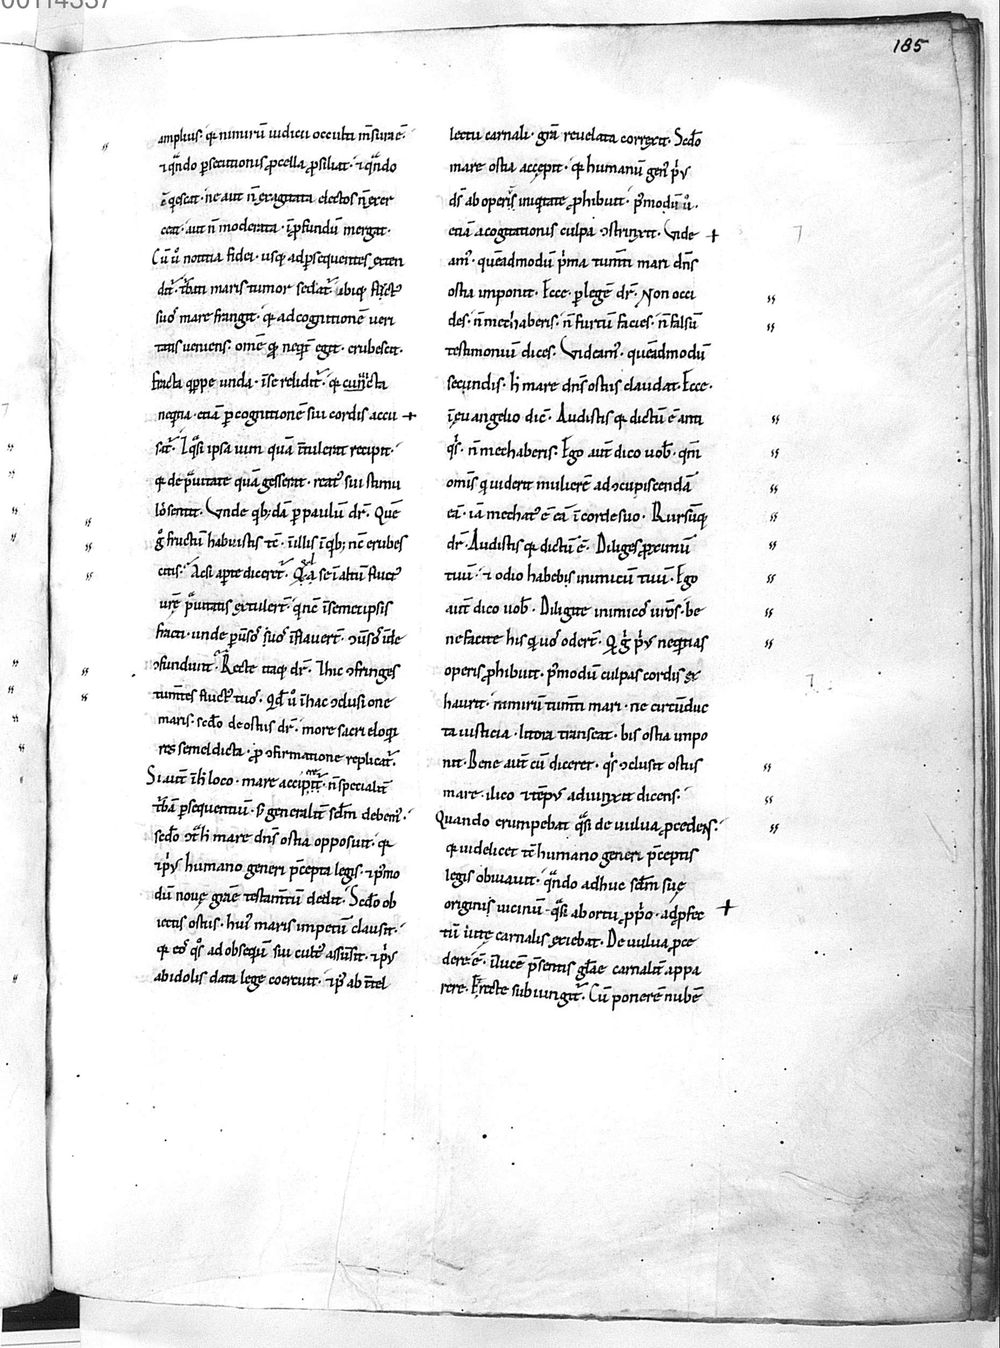 185
amplius· qd nimirū iudicii occulti m̄surae ē·
⁊ qn̄do p̱secutionis ꝓcella ꝓsiliat· ⁊ qn̄do
ne aut n̄ exagitata electos n̄ exer
ceat· aut n̄ moderata· ī ꝓfundū mergat·
Cū ů notitia fidei· usq; ad p̱sequentes exten
dit᷑· turbati maris tumor sedat᷑· ibiq; fluct᷒
suos mare frangit· qd ad cognitionē ueri
tatis ueniens· omē qd neq̇t̄ egit· erubescit·
Fracta q̇ppe unda· ī se relidit᷑· qd cuncta
neq̇tia· etiā p̱ cognitionē sui cordis accu
sat᷑· ⁊ qͣsi ipsa uim quā ītulerat recipit·
qd de p̱uitate quā gesserat· reat᷒ sui stimu
los sentit· Vnde q̇b;dā p̱ paulū dr̄· Que
g° fructū habuistis tc̄· ī illis ī q̇b; nc̄ erubes
citis· Acsi ap̱te diceret᷑· Qd a se ī altū fluct᷒
ur̄e p̱uitatis extulert̄· q̇ nc̄ ī semetipsis
fracti· unde p̱uersos suos īflauert̄·
ↄfundunt· Recte itaq; dr̄· Ihic ↄfringes
tum̄tes fluct᷒ tuos· Qd ů ī hac ↄclusione
maris· scd̄o de ostiis dr̄· more sacri eloq̇i
res semel dicta· ꝓ ↄfirmatione replicat᷑·
Si aūt ī h̄ loco· mare accipim᷒· n̄ specialit̄
turbā p̱sequentiū· s; generalit̄ scd̄m debem᷒·
scd̄o ↄt͛ h̄ mare dn̄s ostia opposuit· qd
⁊ p͛us humano generi p̄cepta legis· ⁊ p᷒mo
dū nouę gr̄ae testam̄tū dedit· Scd̄o ob
iectis ostiis· hui᷒ maris impetū clausit·
qd eos q°s ad obsequiū sui cult᷒ assūsit· ⁊ p͛us
ab idolis data lege coercuit· ⁊ p᷒ ab ītel
lectu carnali· gr̄a reuelata correxit· Scd̄o
mare ostia accepit· qd humanū gen᷒ p͛us
ds̄ ab operis iniq̇tate ꝓhibuit· p᷒modū ů·
etiā a cogitationis culpa ↄstrinxit· Vide
am᷒· queadmodū p͛ma tum̄ti mari dn̄s
ostia imponit· Ecce p̱ legē dr̄· Non occi
des· n̄ mechaberis· n̄ furtū facies· n̄ falsū
testimoniū dices· Videam᷒· queadmodū
secundis· h̄ mare dn̄s ostiis claudat· Ecce·
ī euangelio dic̄· Audistis qd dictū ē anti
q̇s· n̄ mechaberis· Ego aut̄ dico uob̄· qm̄
omīs q̇ uiderit mulierē ad ↄcupiscendā
eā· iā mechat᷒ ē eā ī corde suo· Rursūq;
dr̄· Audistis qd dictū ē· Diliges ꝓximū
tuū· ⁊ odio habebis inimicū tuū· Ego
aut̄ dico uob̄· Diligite inimicos ur̄os· be
nefacite his q̇ uos odert̄· Q̇ g° p͛us neq̇tias
operis ꝓhibuit· p᷒modū culpas cordis ex
hausit· nimirū tum̄ti mari· ne circūduc
ta iusticia· litora transeat· bis ostia impo
nit· Bene aut̄ cū diceret· qd ↄclusit ostiis
mare· ilico ⁊ tēp᷒ adiunxit dicens·
Quando erumpebat qͣsi de uulua ꝓcedens·
qd uidelicet tc̄ humano generi p̄ceptis
legis obuiauit· qn̄do adhuc scd̄m suę
originis uicinū· qͣsi ab ortu ꝓp͛o· ad ꝓfec
tū uitę carnalis exiebat· De uulua ꝓce
dere ē· ī lucē p̄sentis gl̄ae carnalit̄ appa
rere· Et recte subiungit᷑· Cū ponerē nubē